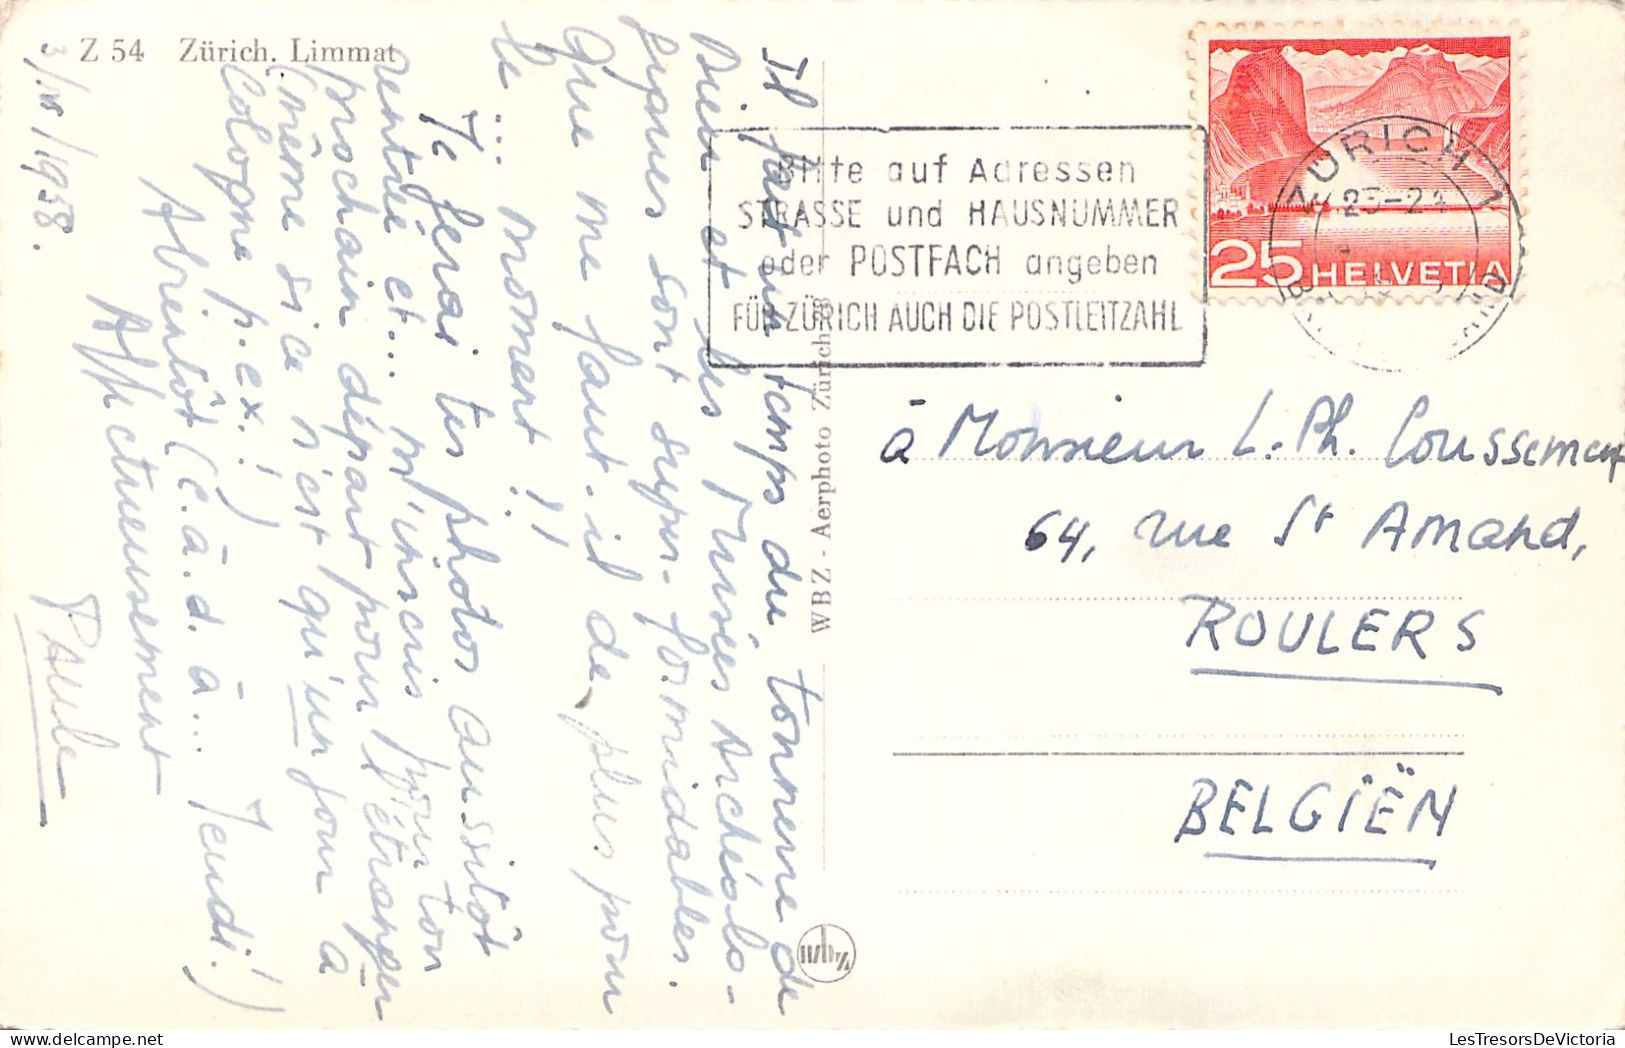 Z 54 Zürich. Limmat
Il fait un temps du tonnerre de
Dieu et les Musées Archéolo-
giques sont supr-formidables.
Que me faut-il de plus pour
le... moment !!
Je ferai tes photos aussitôt
rentrée et... m'inscris pour ton
prochain départ pour l'étranger
(même si ce n'est qu'un jour à
Cologne p.ex.!)
Abientôt (c.à.d. à... Jeudi!)
Affectueusement
Paule
3/IV/1958.
WBZ - Aerphoto Zürich
Bitte auf Adressen
STRASSE und HAUSNUMMER
oder POSTFACH angeben
FÜR ZÜRICH AUCH DIE POSTLEITZAHL
ZÜRICH 1
23-24
25 HELVETIA
à Monsieur L.Ph. Coussement
64, rue St Amand,
ROULERS
BELGIËN
LesTresorsDeVictoria